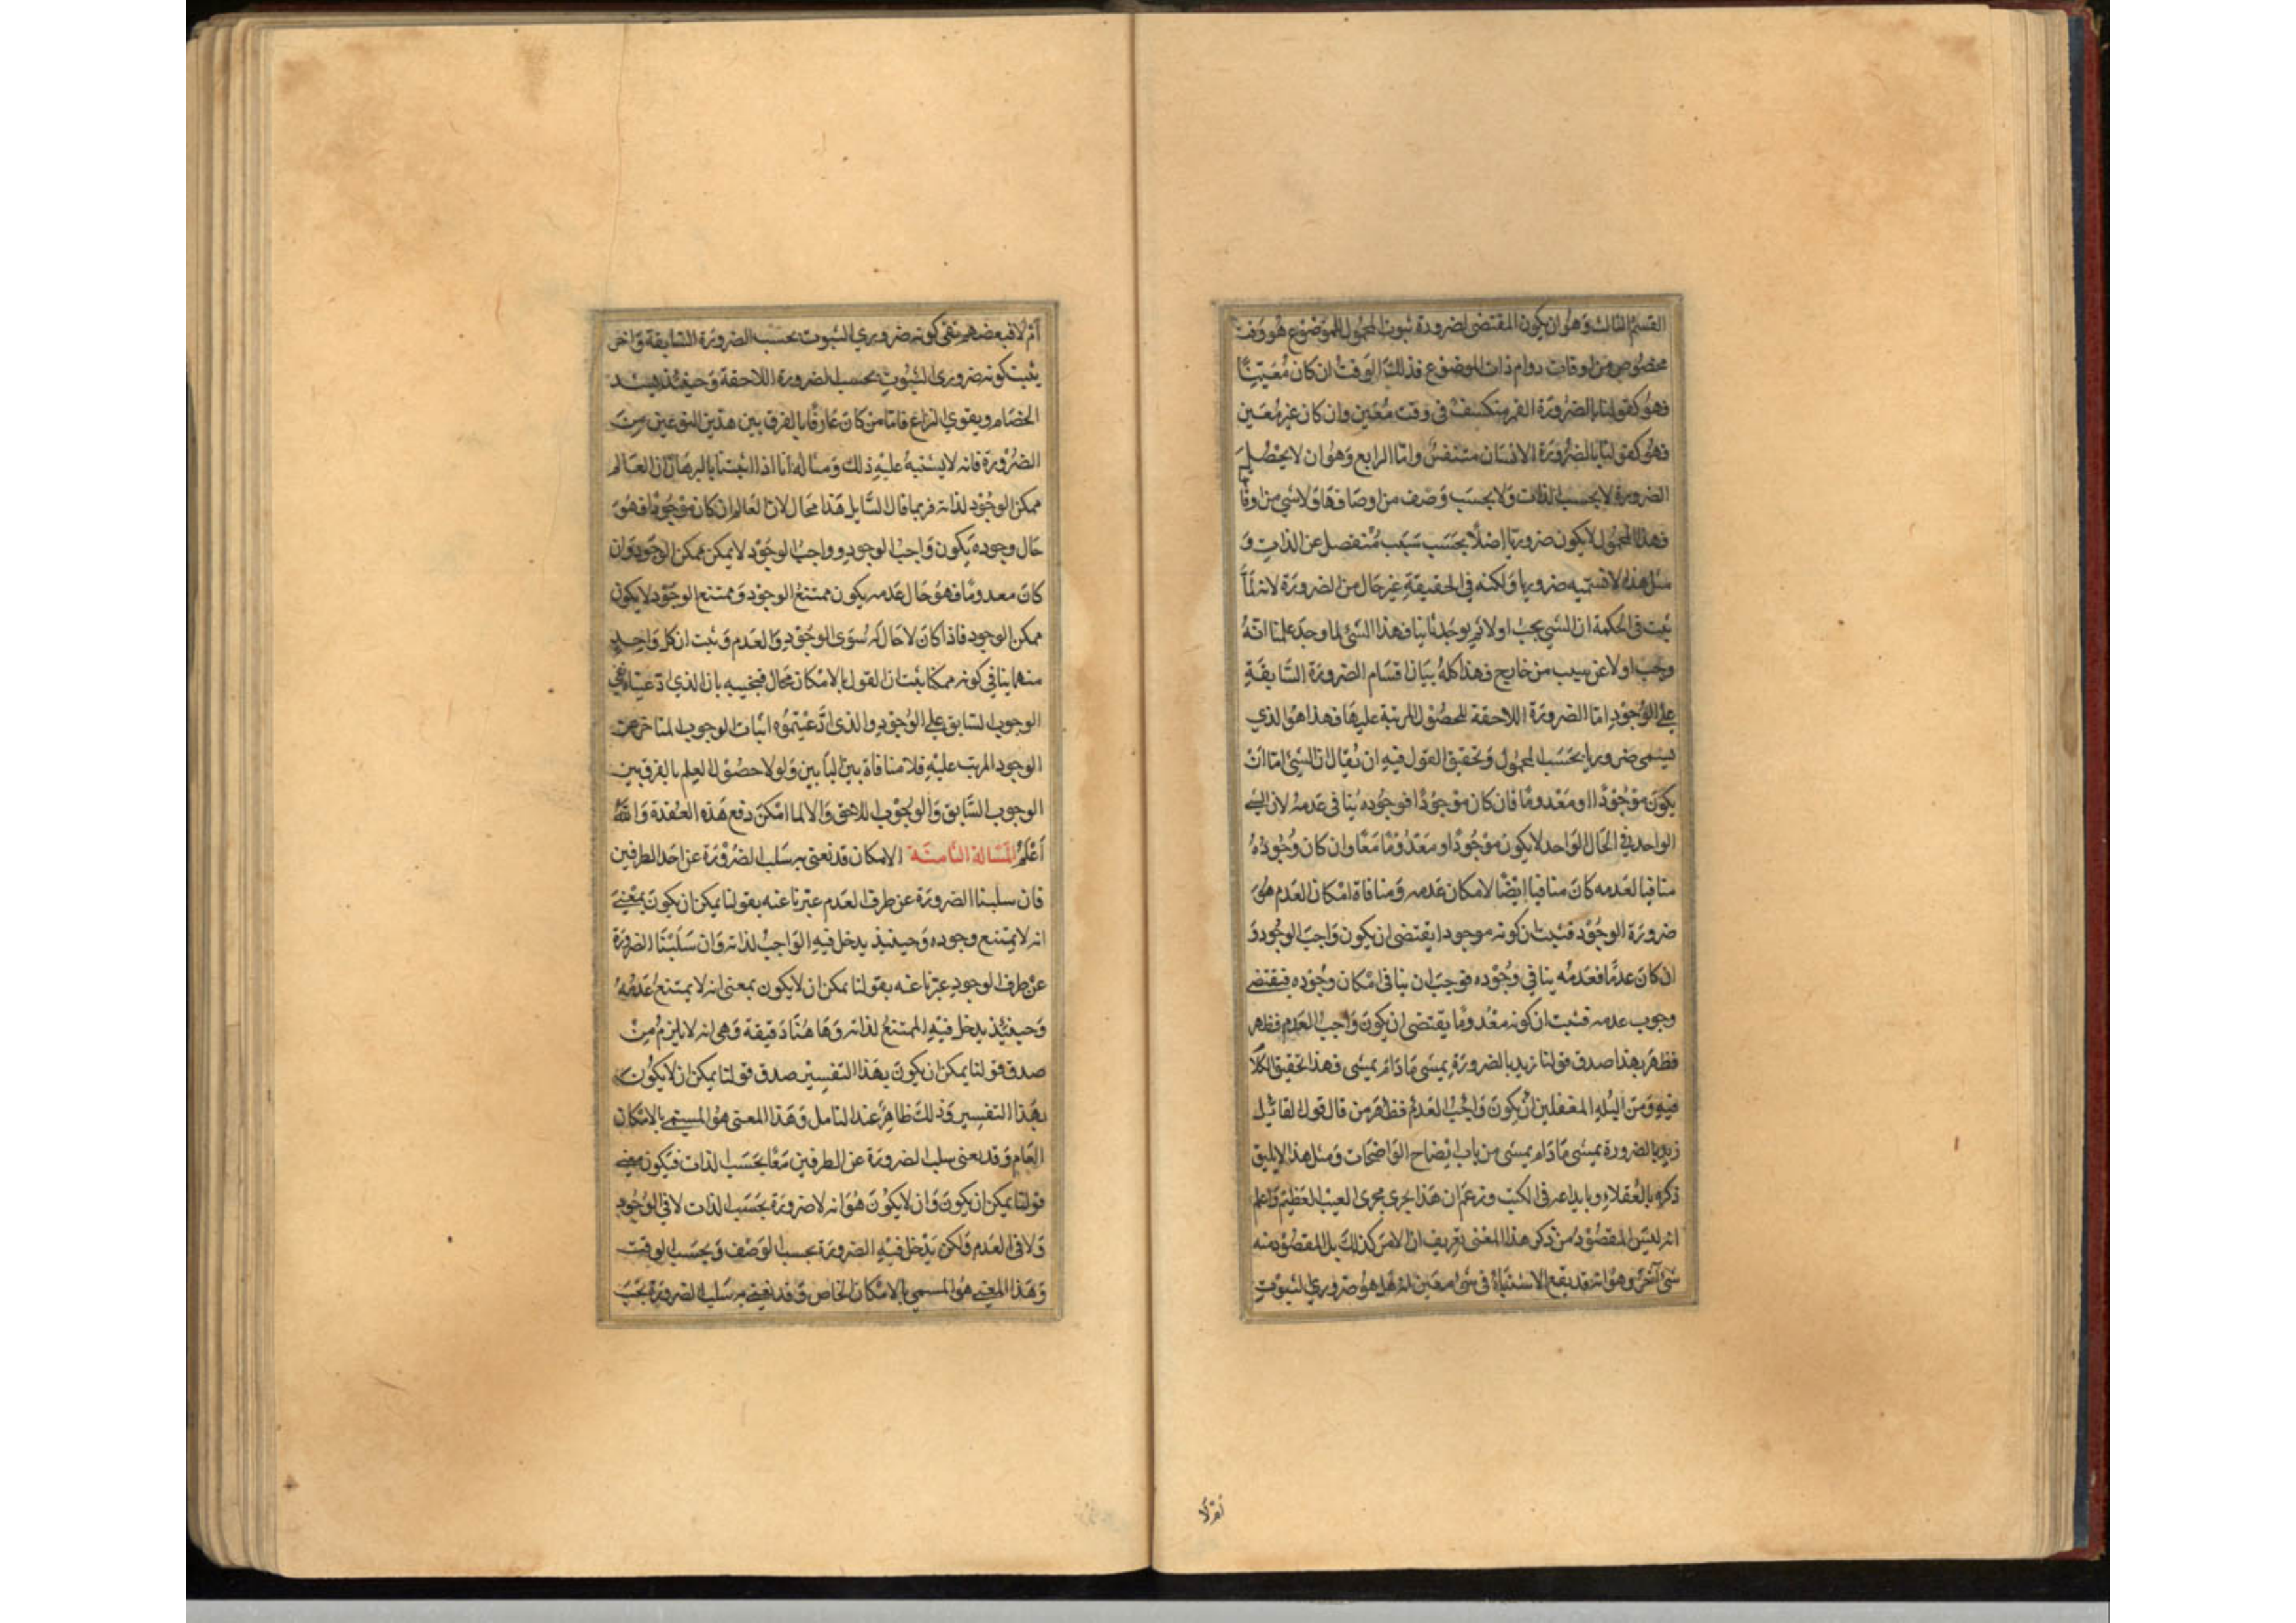 القسم الثالث وهو ان يكون المقتضى لضرورة ثبوت المحمول للموضوع هو وقت
مخصوص من اوقات دوام ذات الموضوع فذلك الوقت ان كان مُعَيّنًا
فهو كقولنا بالضرورة القمر منكسف فى وقت مُعَين وان كان غير مُعَين
فهو كقولنا بالضرورة الانسان متنفس واما الرابع وهو ان لا يحصل
الضرورة لا بحسب الذات ولا بحسب وصف من اوصافها ولا شي من اوقا
فهذا المحمول لا يكون ضروريا اصلا بحسب سبب منفصل عن الذات و
مثل هذا لا نسميه ضروريا ولكنه فى الحقيقة غير خال من الضرورة لانه لما
ثبت فى الحكمة ان الشي يجب اولا ثم يوجد ثانيا فهذا الشئ لما وجد علمنا انه
وجب اولا عن سبب من خارج فهذا كله بيان اقسام الضرورة السابقة
على الوجود اما الضرورة اللاحقة للحصول المرتبة عليها فهذا هو الذي
يسمى ضروريا بحسب المحمول وتحقيق القول فيه ان يقال ان الشئ اما ان
يكون موجودًا او معدوما فان كان موجودًا فوجوده ينافى عدمه لان الشئ
الواحد في الحال الواحد لا يكون موجودًا ومعدومًا معًا وان كان وجوده
منافيا لعدمه كان منافيا ايضًا لامكان عدمه ومنافاة امكان العدم هى
ضرورة الوجود فثبت ان كونه موجودا يقتضى ان يكون واجب الوجود و
ان كان عدمًا فعدمه ينافي وجوده فوجب ان ينافى امكان وجوده فيقتضى
وجوب عدمه فثبت ان كونه معدوما يقتضى ان يكون واجب العدم فظهر
فظهر بهذا صدق قولنا زيد بالضرورة يمشى ما دام يمشى فهذا تحقيق الكلا
فيه ومن البله المغفلين ان يكون واجب العدم فظهر من قال قول القائل
زيد بالضرورة يمشى ما دام يمشى من باب ايضاح الواضحات ومثل هذا لا يليق
ذكره بالعقلاء وبايداعه فى الكتب وزعم ان هذا يجرى مجرى العيب العظيم واعلم
انه ليس المقصود من ذكر هذا المعنى تعريف ان الامر كذلك بل المقصود منه
شئ آخر وهو انه قد يقع الاشتباه فى شئ معين انه هل هو ضروري الثبوت
ام لا
ام لا فبعضهم نفى كونه ضروري الثبوت بحسب الضرورة السابقة واخر
يثبت كونه ضرورى الثبوت بحسب الضرورة اللاحقة وحينئذ يشتد
الخصام ويقوي النزاع فاما من كان عارفا بالفرق بين هذين النوعين من
الضرورة فانه لا يشتبه عليه ذلك ومثاله انا اذا اثبتنا بالبرهان ان العالم
ممكن الوجود لذاته فربما قال السايل هذا محال لان العالم ان كان موجودا فهو
حال وجوده يكون واجب الوجود وواجب الوجود لا يمكن ممكن الوجود وان
كان معدومًا فهو حال عدمه يكون ممتنع الوجود وممتنع الوجود لا يكون
ممكن الوجود فاذا كان لا حال له سوى الوجود والعدم وثبت ان كل واحد
منهما ينافي كونه ممكنا ثبت ان القول بالامكان محال فنجيبه بان الذي ادعيناه نفي
الوجوب السابق على الوجود والذى ادعيتموه اثبات الوجوب المتاخر عن
الوجود المرتب عليه فلا منافاة بين البابين ولولا حصول العلم بالفرق بين
الوجوب السابق والوجوب اللاحق والا لما امكن دفع هذه العقدة والله
أعلم المسالة الثامنة الامكان قد نعنى به سلب الضرورة عن احد الطرفين
فان سلبنا الضرورة عن طرف العدم عبرنا عنه بقولنا يمكن ان يكون بمعنى
انه لا يمتنع وجوده وحينئذ يدخل فيه الواجب لذاته وان سلبنا الضرورة
عن طرف الوجود عبرنا عنه بقولنا يمكن ان لا يكون بمعنى انه لا يمتنع عدمه
وحينئذ يدخل فيه الممتنع لذاته وها هنا دقيقة وهى انه لا يلزم من
صدق قولنا يمكن ان يكون بهذا التفسير صدق قولنا يمكن ان لا يكون
بهذا التفسير وذلك ظاهر عند التامل وهذا المعنى هو المسمى بالامكان
العام وقد يعنى سلب الضرورة عن الطرفين معًا بحسب الذات فيكون معنى
قولنا يمكن ان يكون وان لا يكون هو انه لا ضرورة بحسب الذات لا في الوجود
ولا فى العدم ولكن يدخل فيه الضرورة بحسب الوصف وبحسب الوقت
وهذا المعنى هو المسمى بالامكان الخاص وقد نعنى به سلب الضرورة بحسب